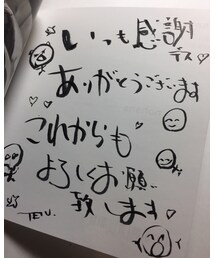 いつも感謝
デス
ありがとうございます
これからも
よろしくお願い
致します
TETU.